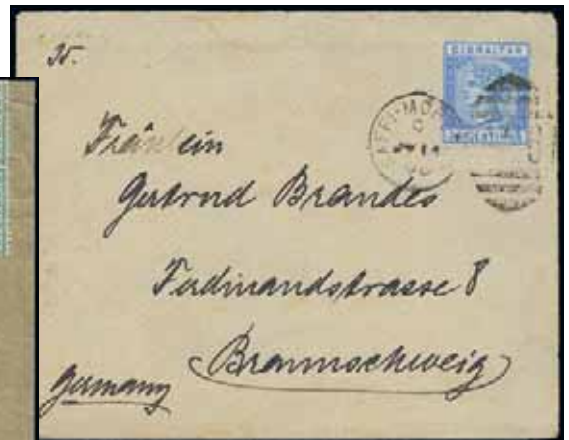 35.
GIBRALTAR
Fräulein
Gertrud Brandes
Ferdinandstrasse 8
Braunschweig
Germany